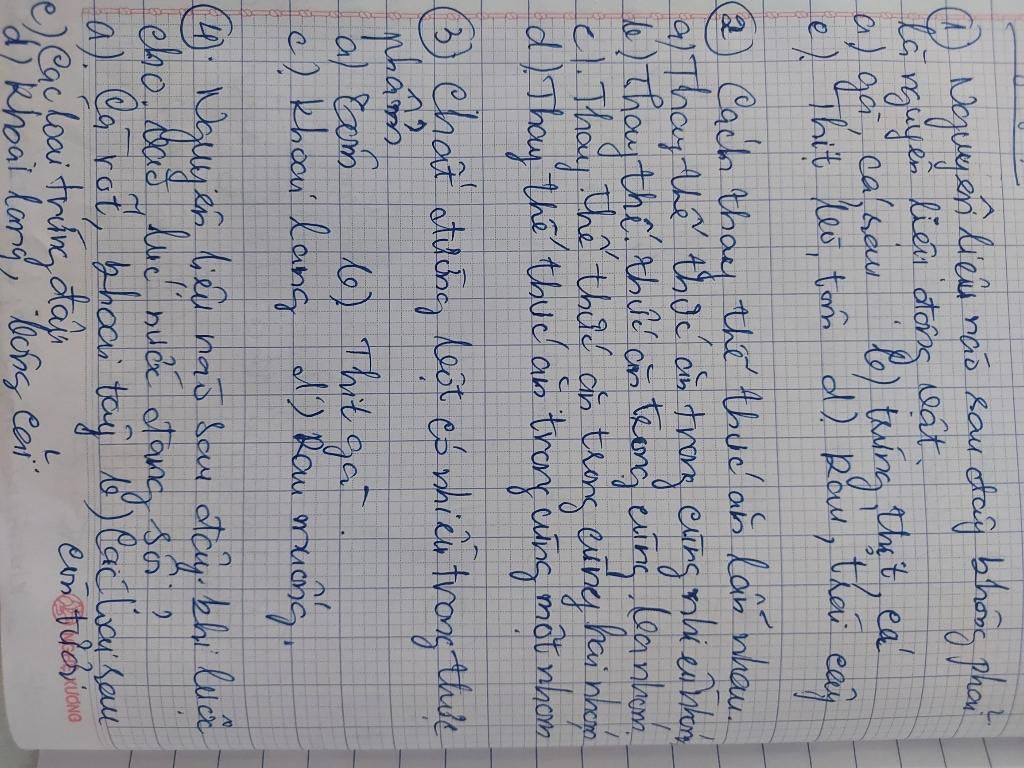 ① Nguyên liệu nào sau đây không phải
là nguyên liệu động vật.
a) gà, cá, rau b) trứng, thịt, cá
c) Thịt, tôm d) Rau, trái cây
② Cách thay thế thức ăn lẫn nhau.
a) Thay thế thức ăn trong cùng nhiều nhóm
b) Thay thế thức ăn trong cùng ba nhóm
c). Thay thế thức ăn trong cùng hai nhóm
d). Thay thế thức ăn trong cùng một nhóm
③ Chất đường bột có nhiều trong thực
phẩm
a) Tôm b) Thịt gà.
c). Khoai lang d) Rau muống.
④. Nguyên liệu nào sau đây khi luộc
cho vào lúc nước đang sôi?
a). Cà rốt, khoai tây b) Các loại rau
c) Các loại trứng, đậu củ tươi
d) Khoai lang, bông cải
XUONG